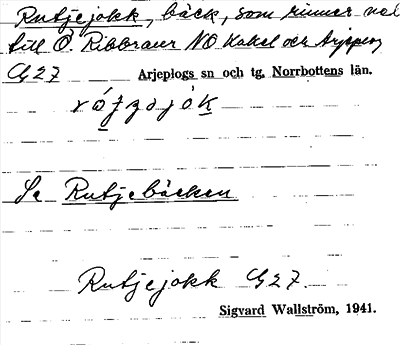 Rutjejokk, bäck, som rinner
till Ö. Ribbraur NO Kakel och Arjeplog
G 27 Arjeplogs sn och tg, Norrbottens län.
Se Rutjebäcken
Rutjejokk G 27.
Sigvard Wallström, 1941.